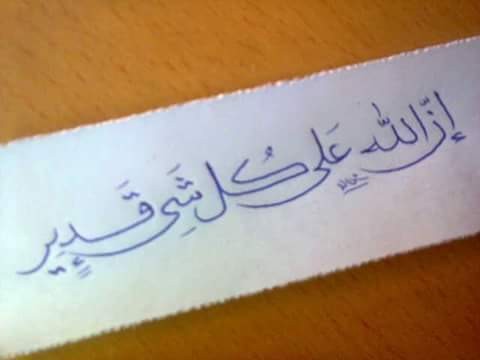 إنّ الله عَلى كُل شَيِ قَدِير